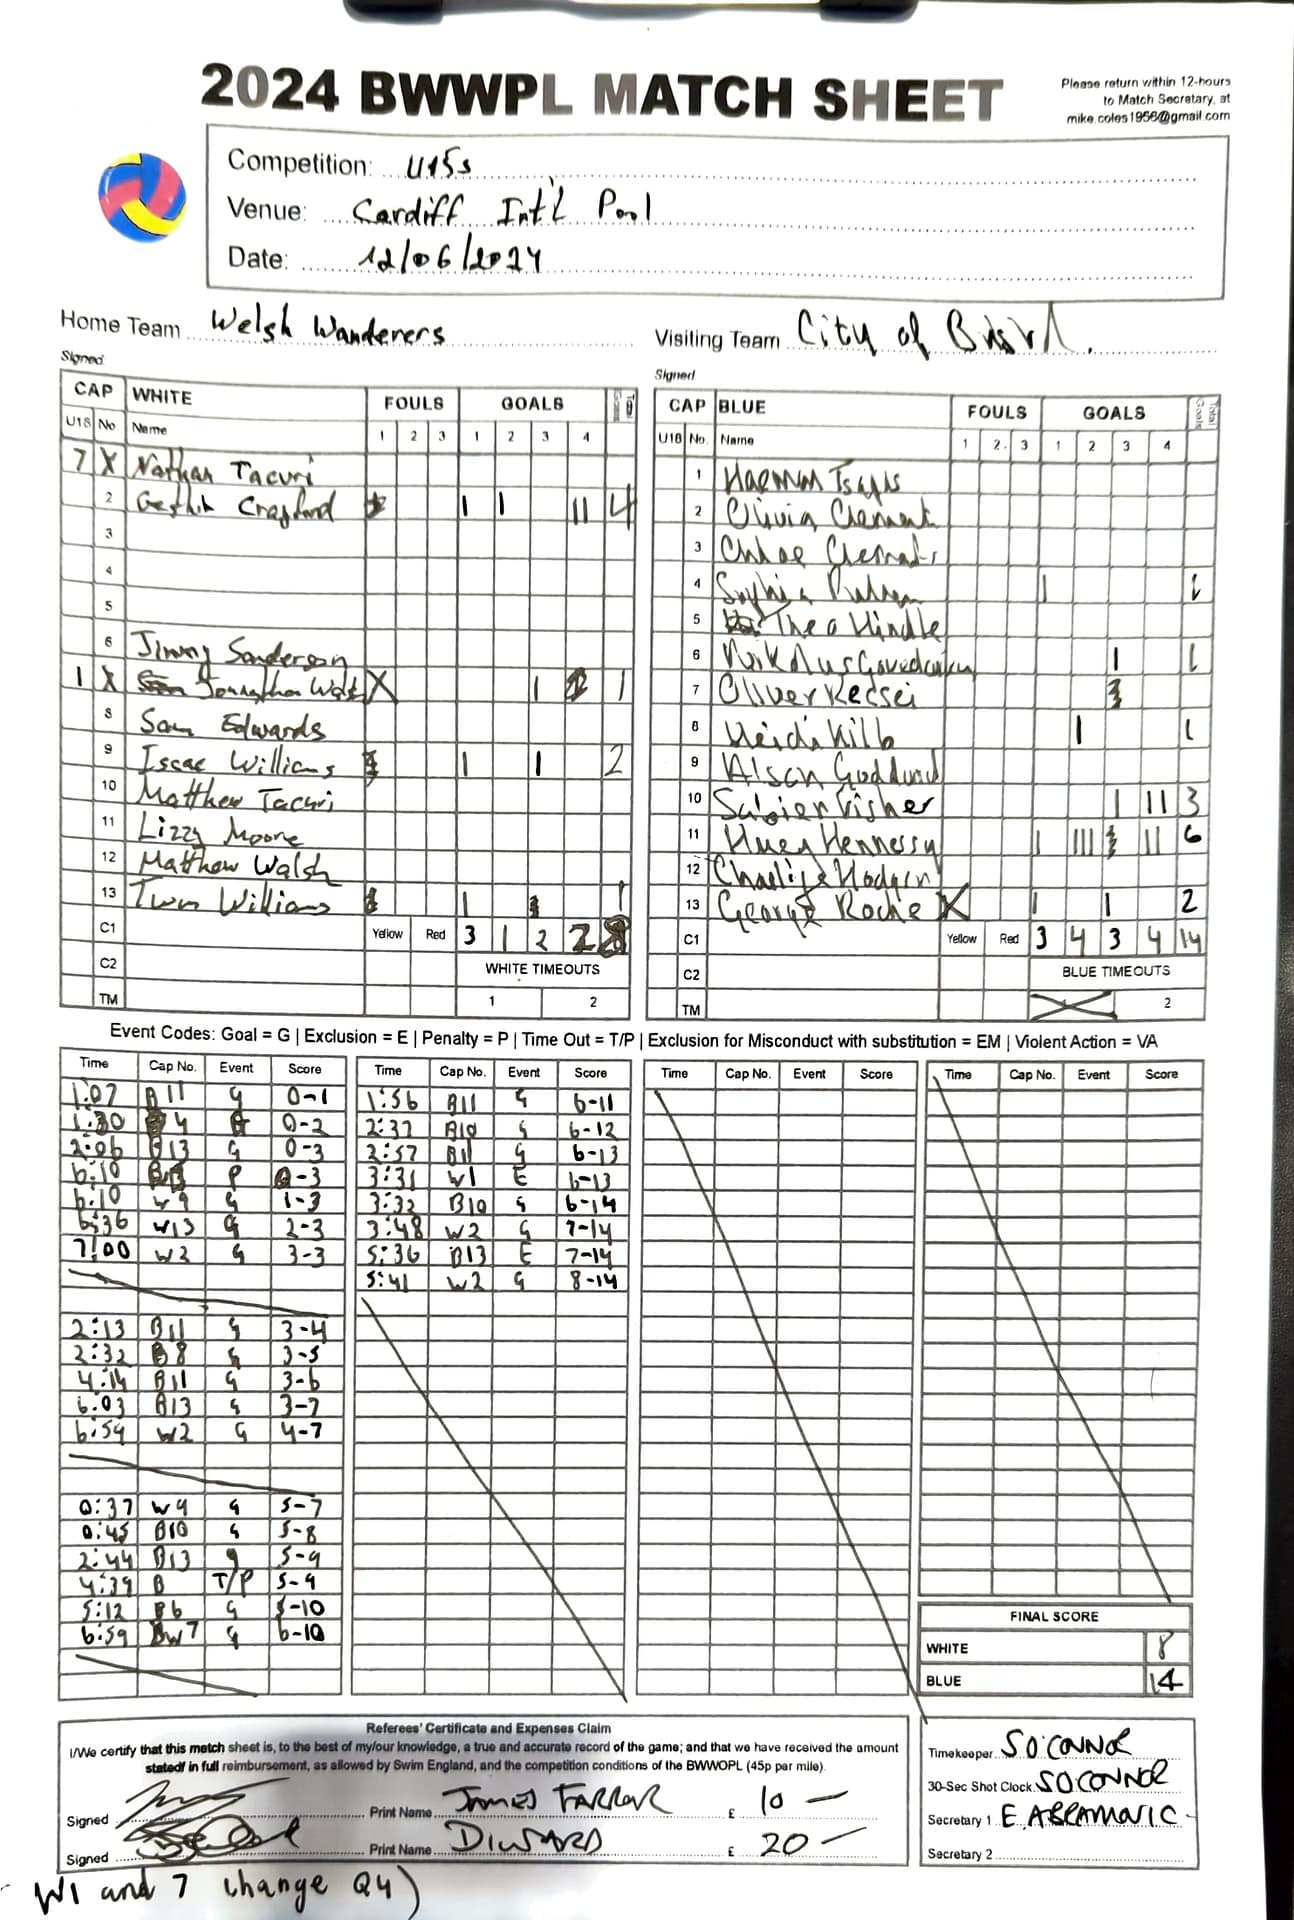 2024 BWWPL MATCH SHEET
Please return within 12-hours
to Match Secretary, at
mike.coles1956@gmail.com
Competition: U15s
Venue: Cardiff Int'l Pool
Date: 12/06/2024
Home Team Welsh Wanderers
Visiting Team City of
Signed
Signed
CAP WHITE FOULS GOALS
U18 No. Name 1 2 3 1 2 3 4
7 X Nathan Tacuri
2 1 1 11 4
3
4
5
6 Jimmy Sanderson
1 X X 1 1
8 Sam Edwards
9 Isaac Williams 1 1 2
10 Matthew Tacuri
11 Lizzy Moore
12 Matthew Walsh
13 Twm Williams 1 1
C1 Yellow Red 3 1 2 2 8
C2 WHITE TIMEOUTS
TM 1 2
CAP BLUE FOULS GOALS Total Goals
U18 No. Name 1 2 3 1 2 3 4
1
2 Olivia Clement
3 Chloe
4 1 1
5 Theo Hindle
6 1 1
7 Oliver Kecsei
8 Heidi 1 1
9
10 1 11 3
11 Huey Hennessy 1 111 11 6
12
13 George Roche X 1 1 2
C1 Yellow Red 3 4 3 4 14
C2 BLUE TIMEOUTS
TM 2
Event Codes: Goal = G | Exclusion = E | Penalty = P | Time Out = T/P | Exclusion for Misconduct with substitution = EM | Violent Action = VA
Time Cap No. Event Score
1:07 B11 G 0-1
1:30 B4 G 0-2
2:06 B13 G 0-3
6:10 B13 P 0-3
6:10 W9 G 1-3
6:36 W13 G 2-3
7:00 W2 G 3-3
2:13 B11 G 3-4
2:32 B8 G 3-5
4:14 B11 G 3-6
6:03 B13 G 3-7
6:54 W2 G 4-7
0:37 W9 G 5-7
0:45 B10 G 5-8
2:44 B13 G 5-9
4:39 B T/P 5-9
5:12 B6 G 5-10
6:59 W7 G 6-10
Time Cap No. Event Score
1:56 B11 G 6-11
2:37 B10 G 6-12
2:57 B11 G 6-13
3:31 W1 E 6-13
3:32 B10 G 6-14
3:48 W2 G 7-14
5:36 B13 E 7-14
5:41 W2 G 8-14
Time Cap No. Event Score
Time Cap No. Event Score
FINAL SCORE
WHITE 8
BLUE 14
Referees' Certificate and Expenses Claim
I/We certify that this match sheet is, to the best of my/our knowledge, a true and accurate record of the game; and that we have received the amount
stated/ in full reimbursement, as allowed by Swim England, and the competition conditions of the BWWOPL (45p per mile).
Signed Print Name JAMES FARROR £ 10 —
Signed Print Name D WARD £ 20 —
Timekeeper S O'CONNOR
30-Sec Shot Clock S O'CONNOR
Secretary 1 E. ABRAMOVIC
Secretary 2
W1 and 7 change Q4)